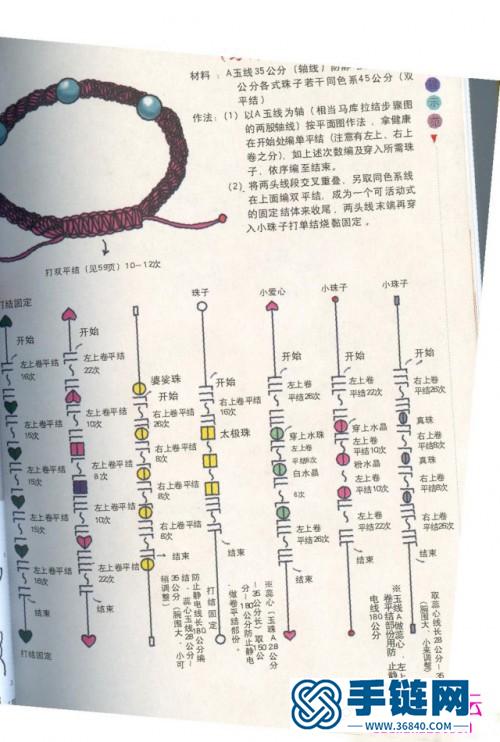 材料：A玉线35公分（轴线）防静
公分各式珠子若干同色系45公分（双
平结）
作法：(1) 以A玉线为轴（相当马库拉结步骤图
的两股轴线）按平面图作法，拿健康
在开始处编单平结（注意有左上、右上
卷之分），如上述次数编及穿入所需珠
子，依序编至结束。
(2) 将两头线段交叉重叠，另取同色系线
在上面编双平结，成为一个可活动式
的固定结体来收尾，两头线末端再穿
入小珠子打单结烧黏固定。
示
范
打双平结（见59页）10－12次
打结固定
开始
左上卷平结
16次
左上卷平结
15次
左上卷平结
15次
左上卷平结
15次
左上卷平结
16次
结束
打结固定
开始
左上卷平结
22次
左上卷平结
10次
左上卷平结
8次
左上卷平结
10次
左上卷平结
22次
结束
婆娑珠
开始
右上卷平结
26次
右上卷平结
8次
右上卷平结
8次
右上卷平结
26次
结束
珠子
开始
右上卷平结
16次
太极珠
结束
打结固定
小爱心
开始
左上卷
平结26次
穿上水珠
左上卷
平结8次
白水晶
6次
左上卷
平结26次
结束
小珠子
开始
左上卷
平结22次
穿上水晶
左上卷
平结10次
粉水晶
左上卷
平结10次
左上卷
平结22次
结束
小珠子
开始
右上卷
平结26次
真珠
右上卷
平结8次
真珠
右上卷
平结8次
右上卷
平结26次
结束
防止静电线长180公分编
结，蕊心玉线28公分－
35公分（腕围大、小可
稍调整）
※蕊心（玉珠A28公分
－35公分长）取150公
分－180公分防止静电
做卷平结部份。
※玉线A做蕊心，左上
卷平结部份用防止静
电线180公分
取蕊心线长28公分－35
（腕围大、小来调整）
云
手链网
www.36840.com